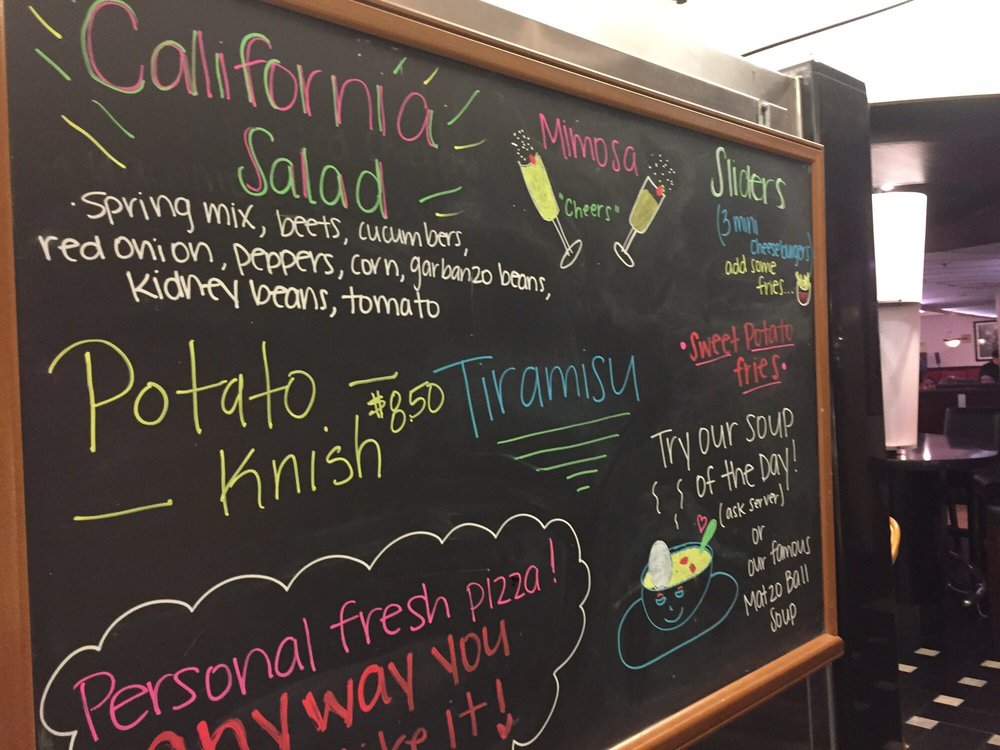 California
Salad
· spring mix, beets, cucumbers,
red onion, peppers, corn, garbanzo beans,
kidney beans, tomato
Mimosa
"Cheers"
Sliders
(3 mini
cheeseburgers)
add some
fries...
· Sweet Potato
fries ·
Potato
Knish
$8.50
Tiramisu
Try our soup
of the Day!
(ask server)
or
our famous
Matzo Ball
Soup
Personal fresh pizza!
anyway you
like it!